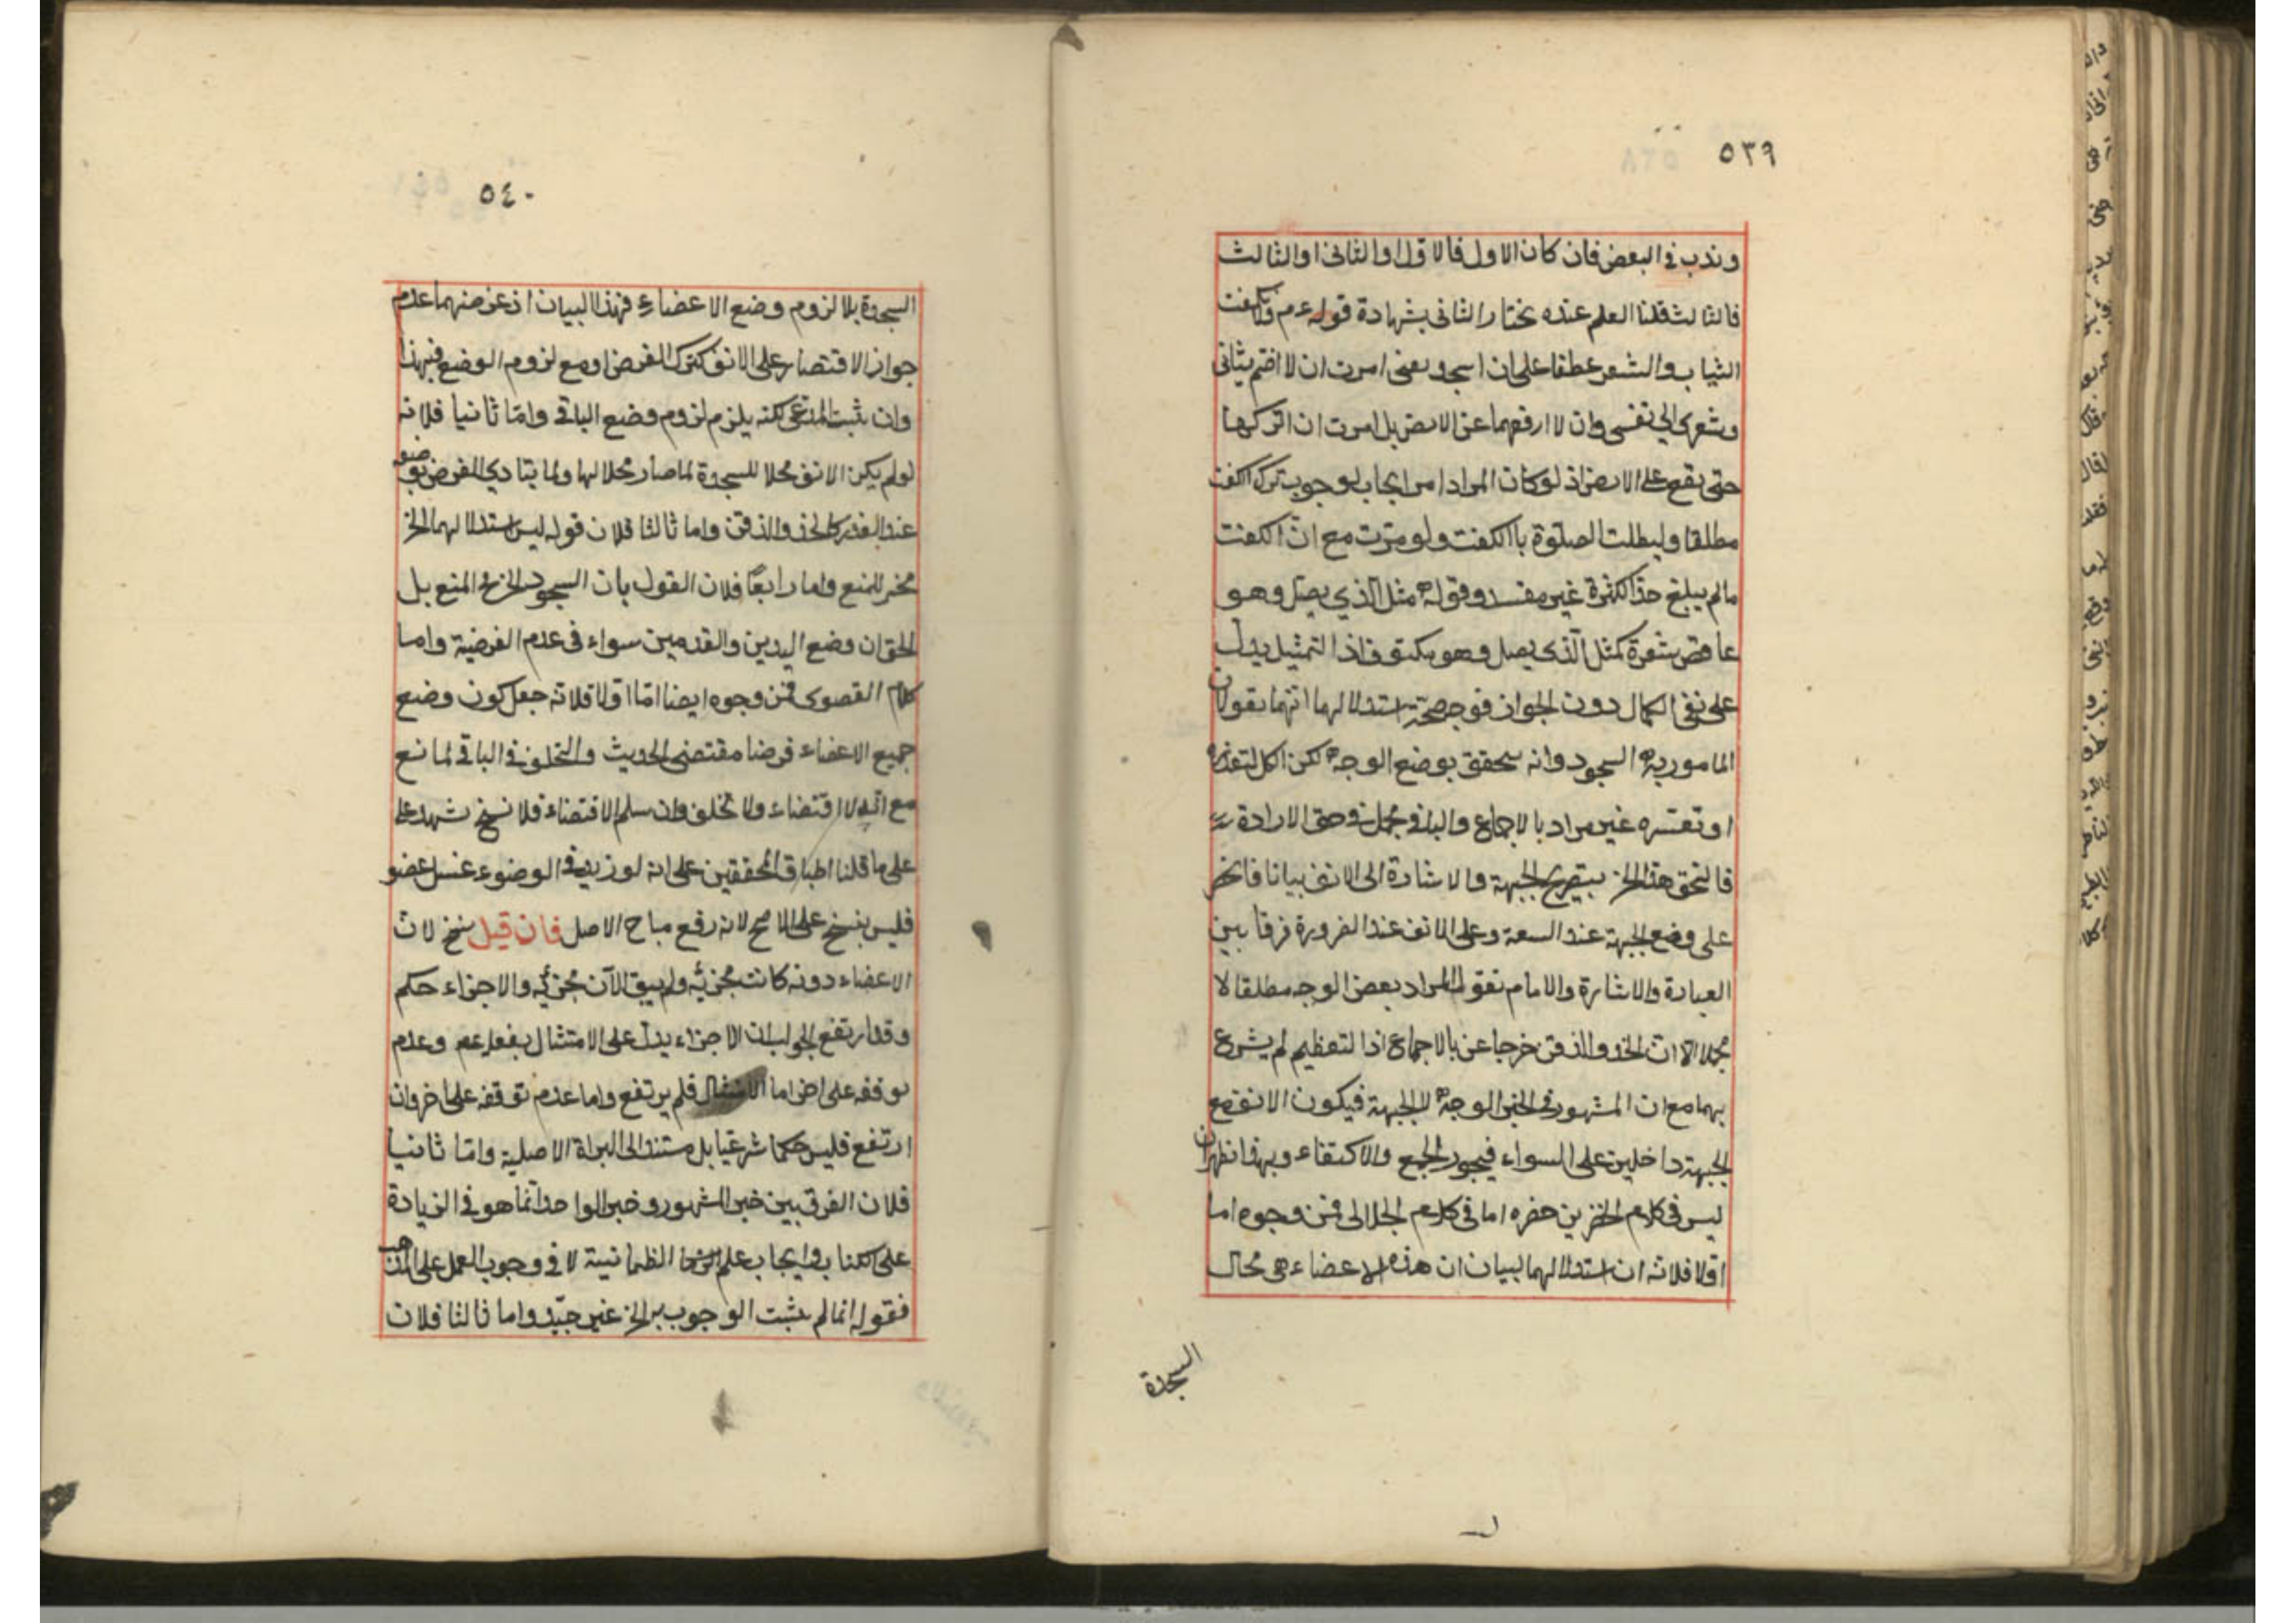 ٥٣٩
وندب في البعض فان كان الاول فالاول او الثاني او الثالث
فالثالث قلنا العلم عنده نختار الثاني بشهادة قوله عم ولا يكفت
الثياب والشعر عطفا على ان اسجد بعني امرت ان لا اضم ثيابي
وشعري الى نفسي وان لا ارفعهما عن الارض بل امرت ان اتركها
حتى يقع على الارض اذ لو كان المراد امر ايجاب لوجوب ترك الكفت
مطلقا ولبطلت الصلوة بالكفت ولو مرت مع ان الكفت
مالم يبلغ حد الكثرة غير مفسد وقوله مثل الذي يصل وهو
عاقص شعره كمثل الذي يصل وهو مكتوف اذ التمثيل يدل
على نفي الكمال دون الجواز فوجه صحة استدلالهما انهما يقولان
المامور به السجود وانه يتحقق بوضع الوجه لكن الكل لتعذره
او تعسره غير مراد بالاجماع والباقي مجمل في حق الارادة
فالتحق هذا الخ بتصريح الجبهة والاشارة الى الانف بيانا فانخر
على وضع الجبهة عند السعة وعلى الانف عند الضرورة فرقا بين
العبارة والاشارة والامام يقول المراد بعض الوجه مطلقا لا
مجملا الا ان الخد والذقن خرجا عن بالاجماع اذ التعظيم لم يشرع
بهما مع ان المشهور في الخبر الوجه لا الجبهة فيكون الانف مع
الجبهة داخلين على السواء فيجوز الجمع والاكتفاء وبهذا ظهر ان
ليس في كلام الخزين حفره اما في كلام الجلالي فمن وجوه اما
اولا فلانه ان استدلالهما لبيان ان هذه الاعضاء هي محال
السجدة
٥٤٠
السجدة بلا لزوم وضع الاعضاء فهذا البيان اذ غرضهما عدم
جواز الاقتصار على الانف كترك الفرض او مع لزوم الوضع فبهذا
وان يثبت المدعي لكنه يلزم لزوم وضع الباقي واما ثانيا فلانه
لو لم يكن الانف محلا للسجدة لما صار محلا لها ولما يتادي الفرض بوضعه
عند العذر كالخد والذقن واما ثالثا فلان قوله ليس استدلالهما الخ
مخبر للمنع واما رابعا فلان القول بان السجود الخ في المنع بل
الحق ان وضع اليدين والقدمين سواء في عدم الفرضية واما
كلام القصوى فمن وجوه ايضا اما اولا فلانه جعل كون وضع
جميع الاعضاء فرضا مقتضى الحديث والتخلف في الباقي لمانع
مع انه لا اقتضاء ولا تخلف وان سلم الاقتضاء فلا نسخ شهد على
على ما قلنا اطباق المحققين على انه لو زيد في الوضوء غسل عضو
فليس بنسخ على الاصح لانه رفع مباح الاصل فان قيل نسخ لان
الاعضاء دونه كانت مجزئه ولم يبق الآن مجزئه والاجزاء حكم
وقد ارتفع الجواب ان الاجزاء يدل على الامتثال بفعل عم وعدم
توقفه على اخر اما الامتثال فلم يرتفع واما عدم توقفه على اخر وان
ارتفع فليس حكما شرعيا بل مستند الى البراة الاصلية واما ثانيا
فلان الفرق بين خبر المشهور وخبر الواحد انما هو في الزيادة
على الكتاب وايجاب علم الطمانينة لا في وجوب العمل على المذهب
فقوله انما لم يثبت الوجوب به الخ غير جيد واما ثالثا فلان